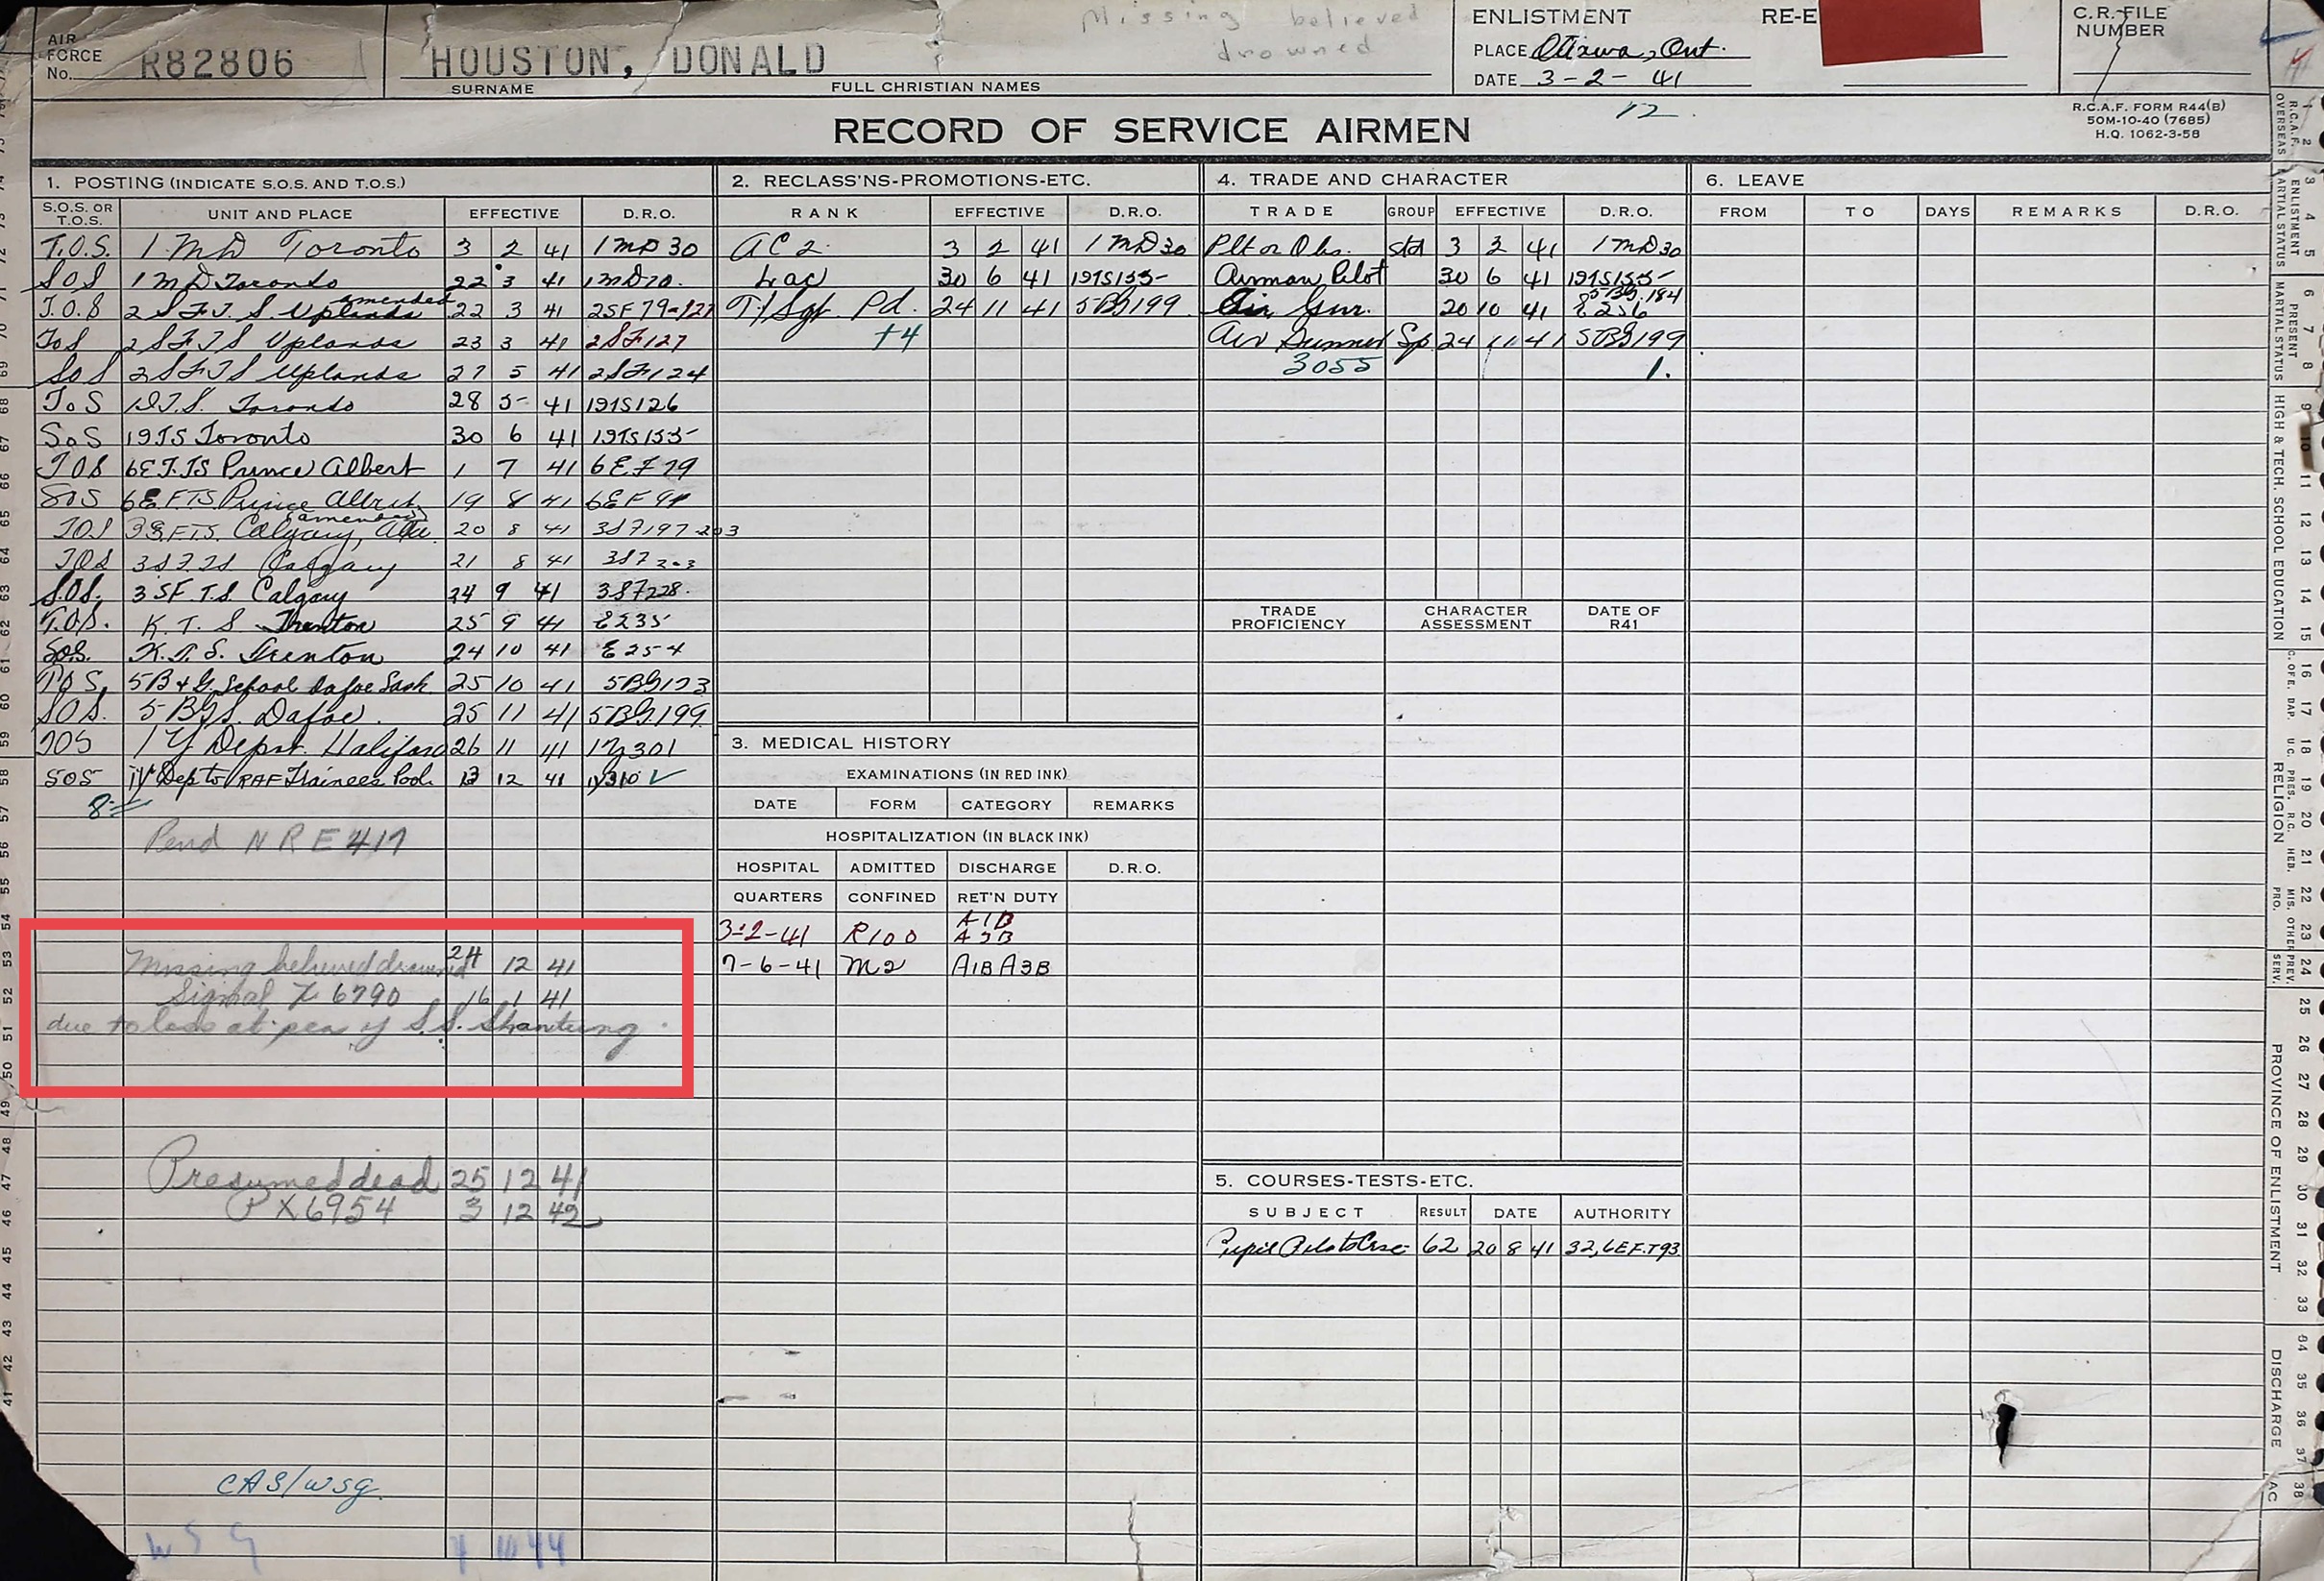 Missing believed
drowned
AIR FORCE No. R82806
HOUSTON, DONALD
SURNAME FULL CHRISTIAN NAMES
ENLISTMENT RE-E
PLACE Ottawa, Ont.
DATE 3-2-41
12
C.R. FILE NUMBER
R.C.A.F. FORM R44(B)
50M-10-40 (7685)
H.Q. 1062-3-58
RECORD OF SERVICE AIRMEN
1. POSTING (INDICATE S.O.S. AND T.O.S.)
S.O.S. OR T.O.S. UNIT AND PLACE EFFECTIVE D.R.O.
T.O.S. 1 M D Toronto 3 2 41 1 MD 30
SOS 1 M D Toronto 22 3 41 1MD70
T.O.S 2 S.F.T.S. Uplands amended 22 3 41 2SF 79-127
ToS 2 SFTS Uplands 23 3 41 2SF127
SoS 2 SFTS Uplands 27 5 41 2SF124
ToS 1 I.T.S. Toronto 28 5 41 1ITS126
SoS 1ITS Toronto 30 6 41 1ITS155
TOS 6E.F.TS Prince Albert 1 7 41 6EF79
SOS 6E FTS Prince Albert 19 8 41
TOS 3S.F.T.S. Calgary, Alta. amended 20 8 41 3SF197-203
TOS 3 S F T S Calgary 21 8 41 3SF203
S.O.S. 3 SF.T.S. Calgary 24 9 41 3SF228.
T.O.S. K. T. S. Trenton 25 9 41 E235
SOS. K.T.S. Trenton 24 10 41 E254
TOS, 5B & G. School Dafoe Sask 25 10 41 5BG173
SOS. 5 BGS. Dafoe. 25 11 41 5BG.199
TOS 1 Y Depot. Halifax 26 11 41 1Y301
SOS 1Y Dep to RAF Trainees Pool 13 12 41 1Y310
8
Pend N R E 417
Missing believed drowned 24 12 41
Signal X 6790 16 1 41
due to loss at sea of S.S. Shantung.
Presumed dead 25 12 41
P X6954 3 12 42
CAS/WSG
W S G
2. RECLASS'NS-PROMOTIONS-ETC.
RANK EFFECTIVE D.R.O.
AC2. 3 2 41 1 MD 30
Lac 30 6 41 1ITS155
T/Sgt Pd. 24 11 41 5BG199
+4
3. MEDICAL HISTORY
EXAMINATIONS (IN RED INK)
DATE FORM CATEGORY REMARKS
HOSPITALIZATION (IN BLACK INK)
HOSPITAL ADMITTED DISCHARGE D.R.O.
QUARTERS CONFINED RET'N DUTY
3-2-41 R100 A1B A3B
7-6-41 M2 A1B A3B
4. TRADE AND CHARACTER
TRADE GROUP EFFECTIVE D.R.O.
Plt or Obs. Std 3 2 41 1 MD 30
Airman Pilot 30 6 41 1ITS155
Air Gnr. 20 10 41 5BG.184 E256
Air Gunner Sp 24 11 41 5BG199
3055 1.
TRADE PROFICIENCY CHARACTER ASSESSMENT DATE OF R41
5. COURSES-TESTS-ETC.
SUBJECT RESULT DATE AUTHORITY
Pupil Pilots Crse 62 20 8 41 32, 6EF.T93
6. LEAVE
FROM TO DAYS REMARKS D.R.O.
R.C.A.F. OVERSEAS
ENLISTMENT
PRESENT MARTIAL STATUS
HIGH & TECH. SCHOOL EDUCATION
RELIGION
PROVINCE OF ENLISTMENT
DISCHARGE